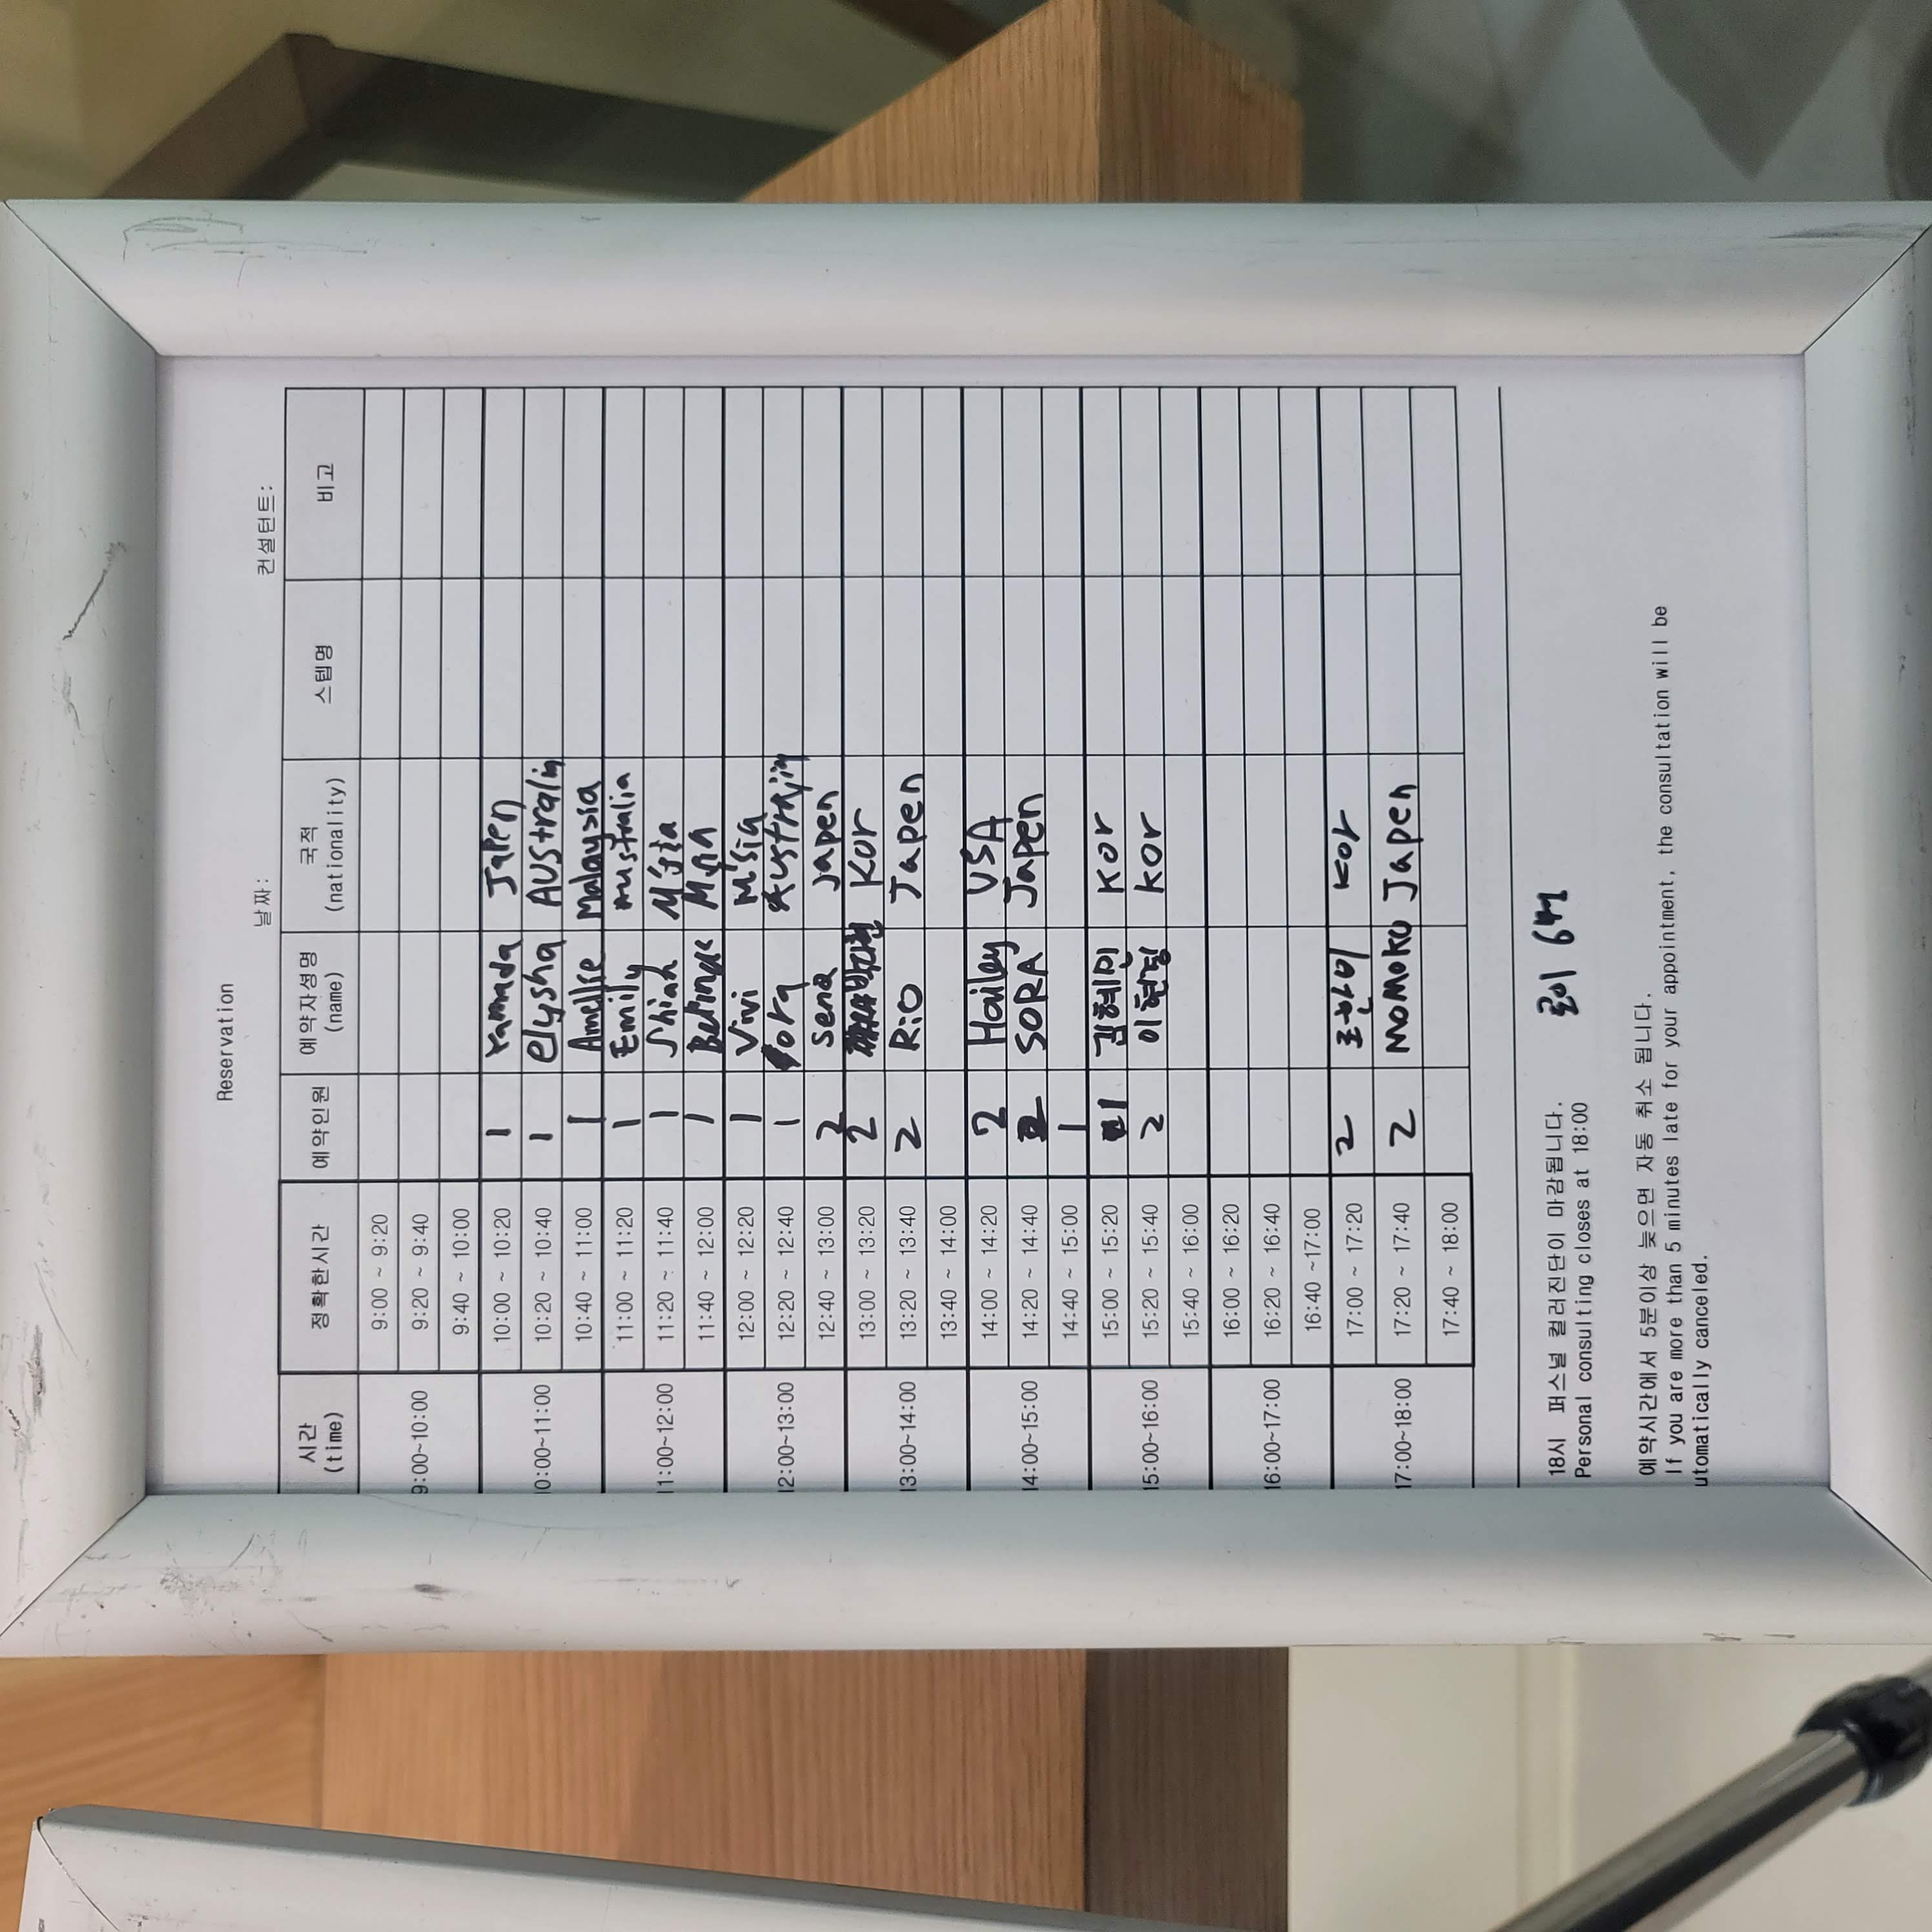 Reservation
날짜: 컨설턴트:
시간 정확한시간 예약인원 예약자성명 국적 스텝명 비고
(time) (name) (nationality)
9:00~10:00 9:00 ~ 9:20
9:20 ~ 9:40
9:40 ~ 10:00
10:00~11:00 10:00 ~ 10:20 1 Yamada Japen
10:20 ~ 10:40 1 elysha AUStralia
10:40 ~ 11:00 1 Amellse Malaysia
11:00~12:00 11:00 ~ 11:20 1 Emily Australia
11:20 ~ 11:40 1 Shiah M'sia
11:40 ~ 12:00 1
12:00~13:00 12:00 ~ 12:20 1 Vivi M'sia
12:20 ~ 12:40 1
12:40 ~ 13:00 2 Sena Japen
13:00~14:00 13:00 ~ 13:20 2 Kor
13:20 ~ 13:40 2 RiO Japen
13:40 ~ 14:00
14:00~15:00 14:00 ~ 14:20 2 Hailey USA
14:20 ~ 14:40 SORA Japen
14:40 ~ 15:00 1
15:00~16:00 15:00 ~ 15:20 1 김혜민 Kor
15:20 ~ 15:40 2 이현정 Kor
15:40 ~ 16:00
16:00~17:00 16:00 ~ 16:20
16:20 ~ 16:40
16:40 ~17:00
17:00~18:00 17:00 ~ 17:20 2 조한비 Kor
17:20 ~ 17:40 2 MOMOKO Japen
17:40 ~ 18:00
18시 퍼스널 컬러진단이 마감됩니다.
Personal consulting closes at 18:00
예약시간에서 5분이상 늦으면 자동 취소 됩니다.
If you are more than 5 minutes late for your appointment, the consultation will be
utomatically canceled.